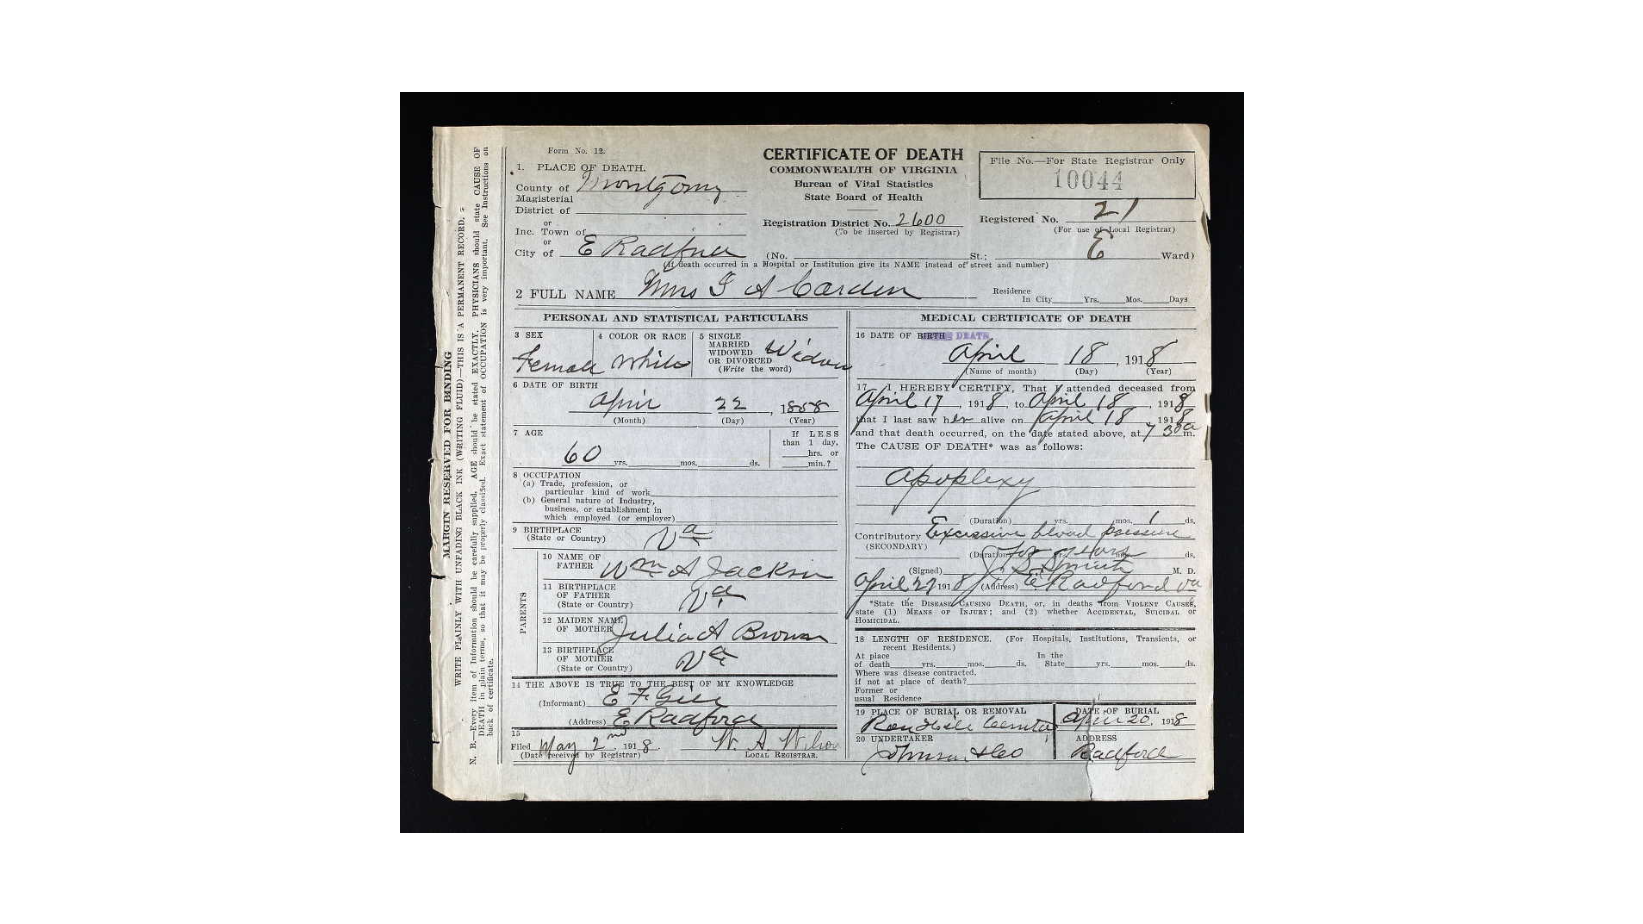 Form No. 12.
1. PLACE OF DEATH.
County of Montgomy
Magisterial
District of
or
Inc. Town of
or
City of E Radford
CERTIFICATE OF DEATH
COMMONWEALTH OF VIRGINIA
Bureau of Vital Statistics
State Board of Health
Registration District No. 2600
(To be inserted by Registrar)
File No.—For State Registrar Only
10044
Registered No. 21
(For use of Local Registrar)
(No. St.; E Ward)
(If death occurred in a Hospital or Institution give its NAME instead of street and number)
2 FULL NAME Mrs A Carden
Residence
In City Yrs. Mos. Days
PERSONAL AND STATISTICAL PARTICULARS
3 SEX
Female
4 COLOR OR RACE
White
5 SINGLE
MARRIED
WIDOWED
OR DIVORCED
(Write the word)
Widow
6 DATE OF BIRTH
April 22, 1858
(Month) (Day) (Year)
7 AGE
60 yrs. mos. ds.
If LESS
than 1 day,
hrs. or
min.?
8 OCCUPATION
(a) Trade, profession, or
particular kind of work
(b) General nature of Industry,
business, or establishment in
which employed (or employer)
9 BIRTHPLACE
(State or Country) Va
PARENTS
10 NAME OF
FATHER Wm A Jackson
11 BIRTHPLACE
OF FATHER
(State or Country) Va
12 MAIDEN NAME
OF MOTHER Julia A Brown
13 BIRTHPLACE
OF MOTHER
(State or Country) Va
14 THE ABOVE IS TRUE TO THE BEST OF MY KNOWLEDGE
(Informant) E F
(Address) E Radford
15
Filed May 2nd 1918
(Date received by Registrar)
W. A. Wilson
LOCAL REGISTRAR.
MEDICAL CERTIFICATE OF DEATH
16 DATE OF BIRTH DEATH
April 18 1918
(Name of month) (Day) (Year)
17 I HEREBY CERTIFY, That I attended deceased from
April 17, 1918, to April 18, 1918
that I last saw her alive on April 18 1918
and that death occurred, on the date stated above, at 7 30 a m.
The CAUSE OF DEATH* was as follows:
Apoplexy
(Duration) yrs. mos. 1 ds.
Contributory Excessive blood pressure
(SECONDARY)
(Duration) ds.
(Signed) Smith M. D.
April 27 1918 (Address) E Radford Va
*State the DISEASE CAUSING DEATH, or, in deaths from VIOLENT CAUSES,
state (1) MEANS OF INJURY; and (2) whether ACCIDENTAL, SUICIDAL or
HOMICIDAL.
18 LENGTH OF RESIDENCE. (For Hospitals, Institutions, Transients, or
recent Residents.)
At place
of death yrs. mos. ds.
In the
State yrs. mos. ds.
Where was disease contracted,
if not at place of death?
Former or
usual Residence
19 PLACE OF BURIAL OR REMOVAL
DATE OF BURIAL
April 20, 1918
20 UNDERTAKER
& Co
ADDRESS
Radford
MARGIN RESERVED FOR BINDING
WRITE PLAINLY WITH UNFADING BLACK INK (WRITING FLUID)—THIS IS A PERMANENT RECORD.
N. B.—Every item of Information should be carefully supplied. AGE should be stated EXACTLY. PHYSICIANS should state CAUSE OF
DEATH in plain terms, so that it may be properly classified. Exact statement of OCCUPATION is very important. See Instructions on
back of certificate.